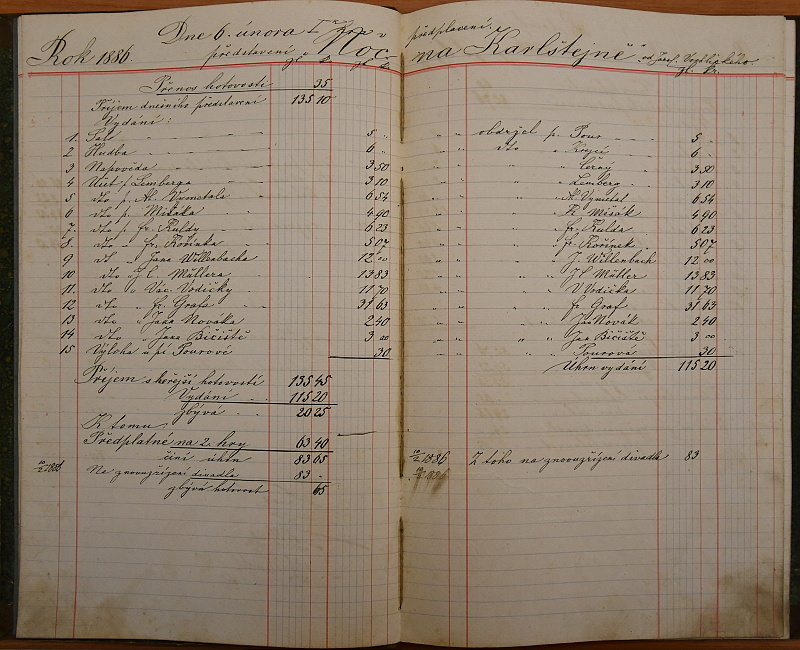 Rok 1886. Dne 6. února I. hra v předplavení
představení "Noc na Karlštejně" od Jarosl. Vrchlického
zl. k. zl. kr.
Přenos hotovosti 35
Příjem dnešního představení 135 10
Vydání:
1. Sál 5 " " " obdržel p. Pour 5 -
2 Hudba 6 " " " dto " Krejčí 6 -
3 Nápověda 3 50 " " " Černý 3 50
4 Účet p. Lemberga 3 10 " " " Lemberg 3 10
5 dto p. Ant. Vymetala 6 54 " " " A. Vymetal 6 54
6 dto p. Mišáka 4 90 " " " Mišák 4 90
7 dto p. fr. Kuldy 6 23 " " " fr. Kulda 6 23
8 dto " fr. Kořínka 5 07 " " " fr. Kořínek 5 07
9 dt " Jana Willenbacha 12 00 " " " J. Willenbach 12 00
10 dto " J. C. Müllera 13 83 " " " J C Müller 13 83
11 dto " Vác. Vodičky 11 70 " " " V Vodička 11 70
12 dto " fr. Grafa 31 63 " " " fr. Graf 31 63
13 dto " Jana Nováka 2 40 " " " Jan Novák 2 40
14 dto " Jana Bičiště 3 00 " " " Jan Bičiště 3 00
15 Výloha u pí Pourové 30 " " " Pourová 30
Úhrn vydání 115 20
Příjem s kejší hotovostí 135 45
Vydání 115 20
Zbývá 20 25
K tomu:
Předplatné na 2 hry 63 40
činí úhrn 83 65
10/2 1886 Na znovuzřízení divadla 83 - 10/2 1886 Z toho na znovuzřízení divadla 83
zbývá hotovost 65